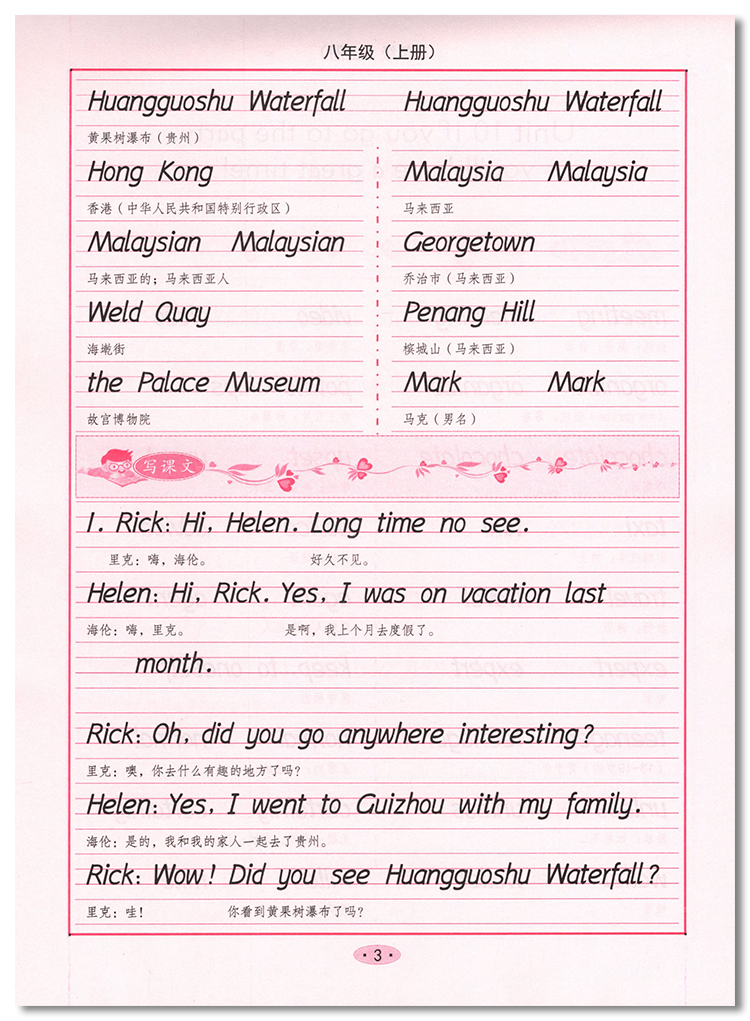 八年级（上册）
Huangguoshu Waterfall Huangguoshu Waterfall
黄果树瀑布（贵州）
Hong Kong Malaysia Malaysia
香港（中华人民共和国特别行政区） 马来西亚
Malaysian Malaysian Georgetown
马来西亚的；马来西亚人 乔治市（马来西亚）
Weld Quay Penang Hill
海墘街 槟城山（马来西亚）
the Palace Museum Mark Mark
故宫博物院 马克（男名）
写课文
1. Rick: Hi, Helen. Long time no see.
里克：嗨，海伦。 好久不见。
Helen: Hi, Rick. Yes, I was on vacation last
海伦：嗨，里克。 是啊，我上个月去度假了。
month.
Rick: Oh, did you go anywhere interesting?
里克：噢，你去什么有趣的地方了吗？
Helen: Yes, I went to Guizhou with my family.
海伦：是的，我和我的家人一起去了贵州。
Rick: Wow! Did you see Huangguoshu Waterfall?
里克：哇！ 你看到黄果树瀑布了吗？
· 3 ·